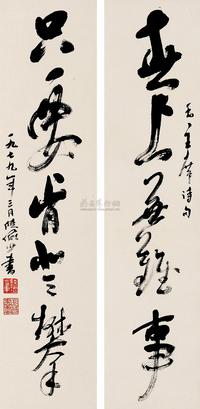 毛主席詩句
世上無難事
只要肯登攀
一九七九年三月陸儼少書